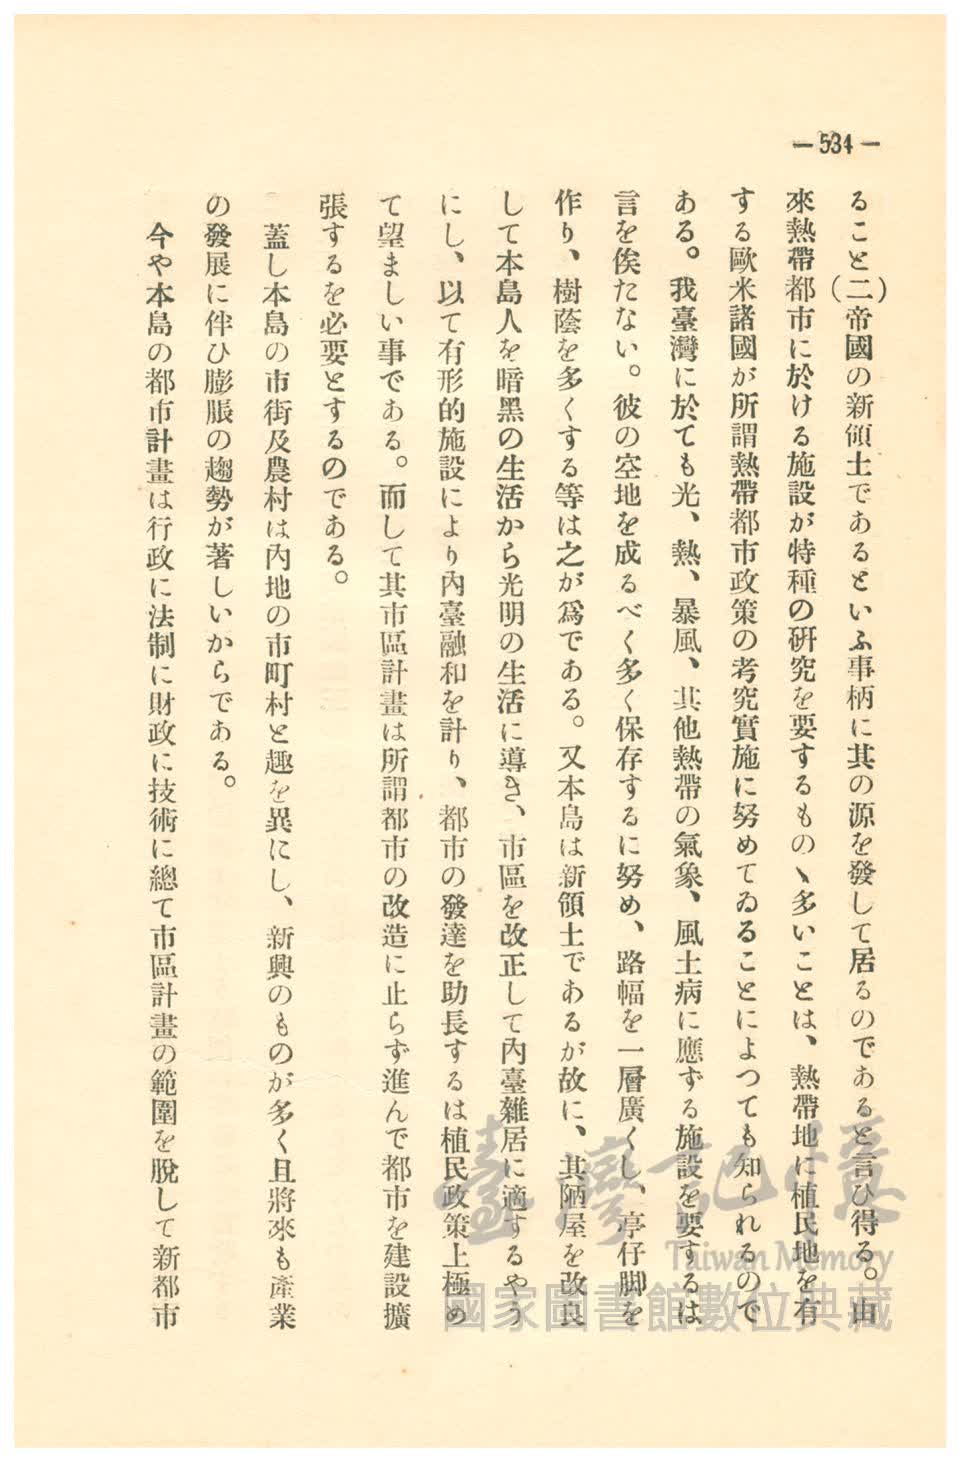 — 534 —
ること(二)帝國の新領土であるといふ事柄に其の源を發して居るのであると言ひ得る。由
來熱帶都市に於ける施設が特種の硏究を要するものゝ多いことは、熱帶地に植民地を有
する歐米諸國が所謂熱帶都市政策の考究實施に努めてゐることによつても知られるので
ある。我臺灣に於ても光、熱、暴風、其他熱帶の氣象、風土病に應ずる施設を要するは
言を俟たない。彼の空地を成るべく多く保存するに努め、路幅を一層廣くし、亭仔脚を
作り、樹蔭を多くする等は之が爲である。又本島は新領土であるが故に、其陋屋を改良
して本島人を暗黑の生活から光明の生活に導き、市區を改正して內臺雜居に適するやう
にし、以て有形的施設により內臺融和を計り、都市の發達を助長するは植民政策上極め
て望ましい事である。而して其市區計畫は所謂都市の改造に止らず進んで都市を建設擴
張するを必要とするのである。
蓋し本島の市街及農村は內地の市町村と趣を異にし、新興のものが多く且將來も產業
の發展に伴ひ膨脹の趨勢が著しいからである。
今や本島の都市計畫は行政に法制に財政に技術に總て市區計畫の範圍を脫して新都市
臺灣記憶
Taiwan Memory
國家圖書館數位典藏